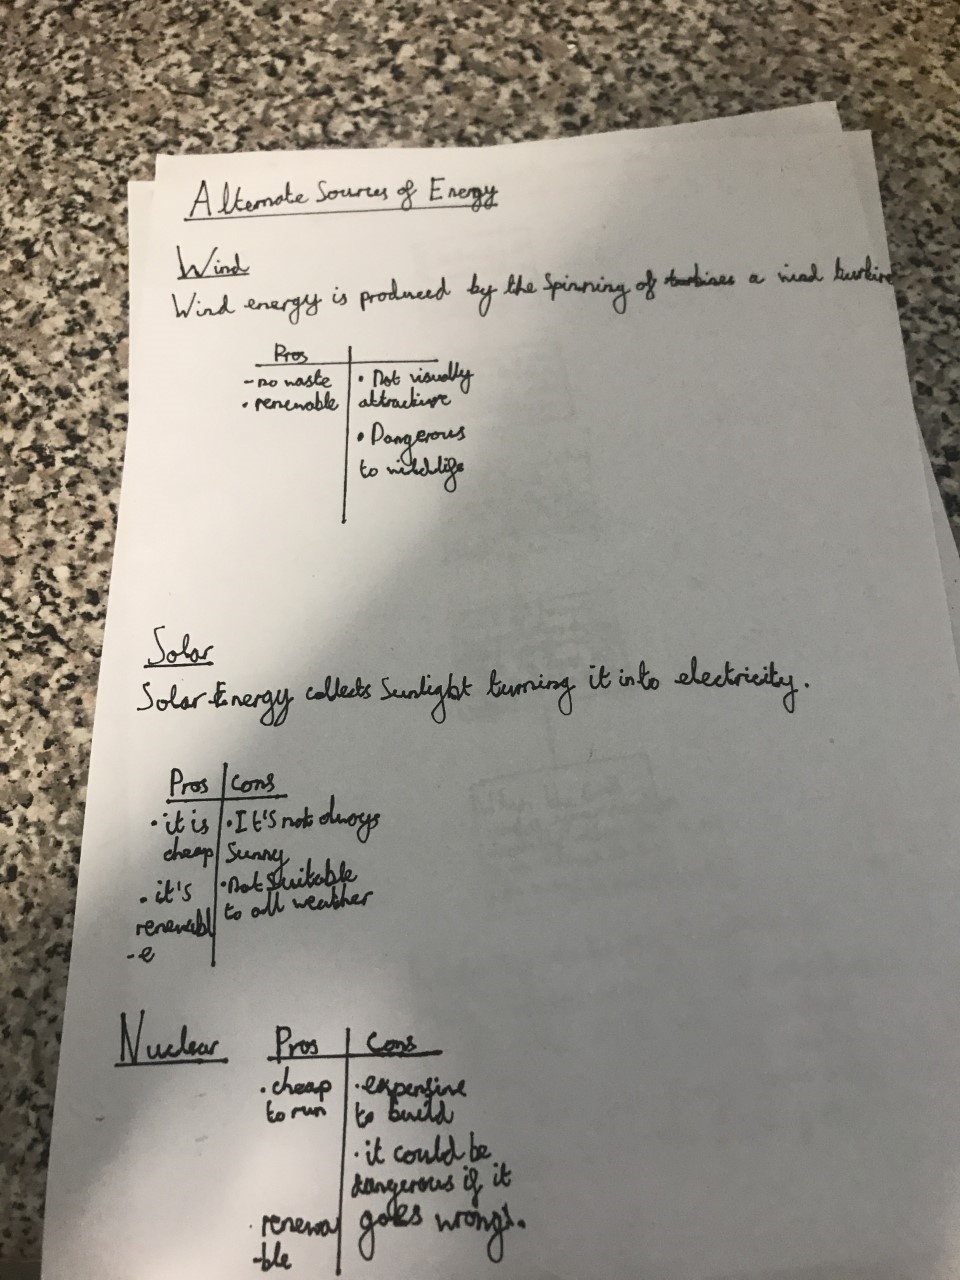 Alternate Sources of Energy
Wind
Wind energy is produced by the Spinning of turbines a wind turbine
Pros
- no waste
• renewable
• Not visually
attractive
• Dangerous
to wildlife
Solar
Solar Energy collects Sunlight turning it into electricity.
Pros
• it is
cheap
• it's
renewabl
-e
Cons
• It's not always
Sunny
• Not Suitable
to all weather
Nuclear
Pros
• cheap
to run
• renewa
-ble
Cons
• expensive
to build
• it could be
dangerous if it
goes wrong.